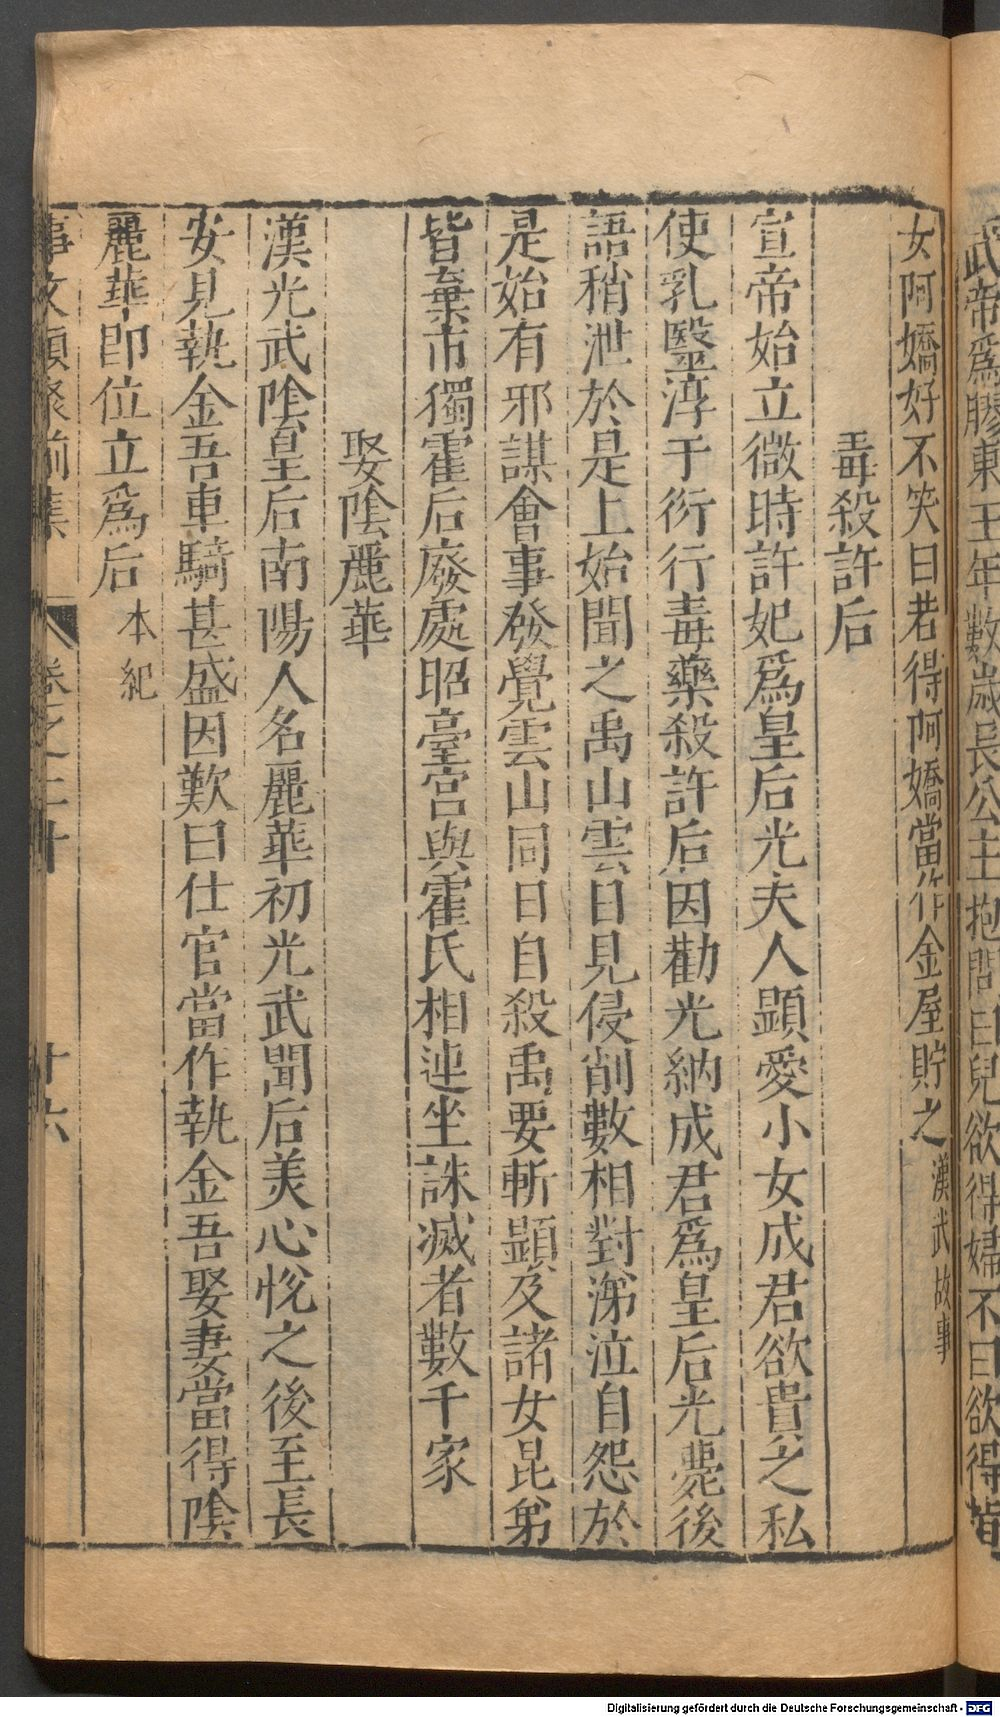 武帝爲膠東王年數歲長公主抱問曰兒欲得婦不曰欲得指
女阿嬌好不笑曰若得阿嬌當作金屋貯之漢武故事
毒殺許后
宣帝始立微時許妃爲皇后光夫人顯愛小女成君欲貴之私
使乳毉淳于衍行毒藥殺許后因勸光納成君爲皇后光薨後
語稍泄於是上始聞之禹山雲日見侵削數相對涕泣自怨於
是始有邪謀會事發覺雲山同日自殺禹要斬顯及諸女昆弟
皆棄市獨霍后廢處昭臺宮與霍氏相連坐誅滅者數千家
娶陰麗華
漢光武陰皇后南陽人名麗華初光武聞后美心悅之後至長
安見執金吾車騎甚盛因歎曰仕官當作執金吾娶妻當得陰
麗華即位立爲后本紀
事文類聚前集 卷之二十 廿六
Digitalisierung gefördert durch die Deutsche Forschungsgemeinschaft - DFG